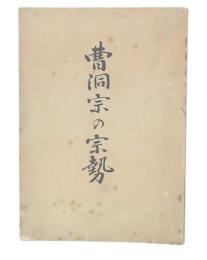 曹洞宗の宗勢